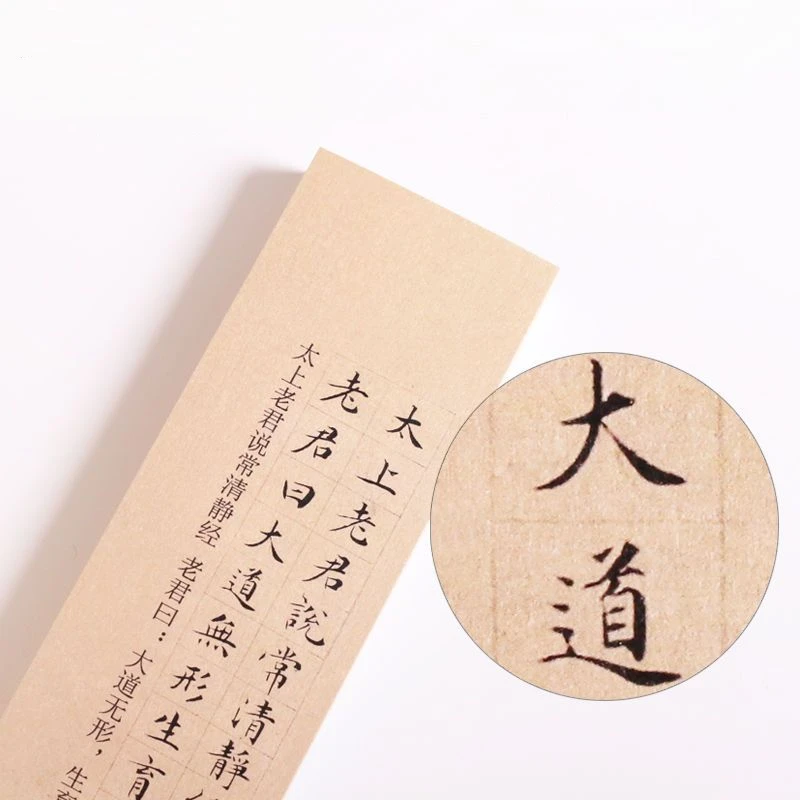 太上老君説常清靜
老君曰大道無形生育
太上老君说常清静经 老君曰：大道无形，生育
大道